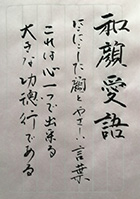 和顔愛語
にこにこした顔とやさしい言葉
これは心一つで出来る
大きな功徳行である